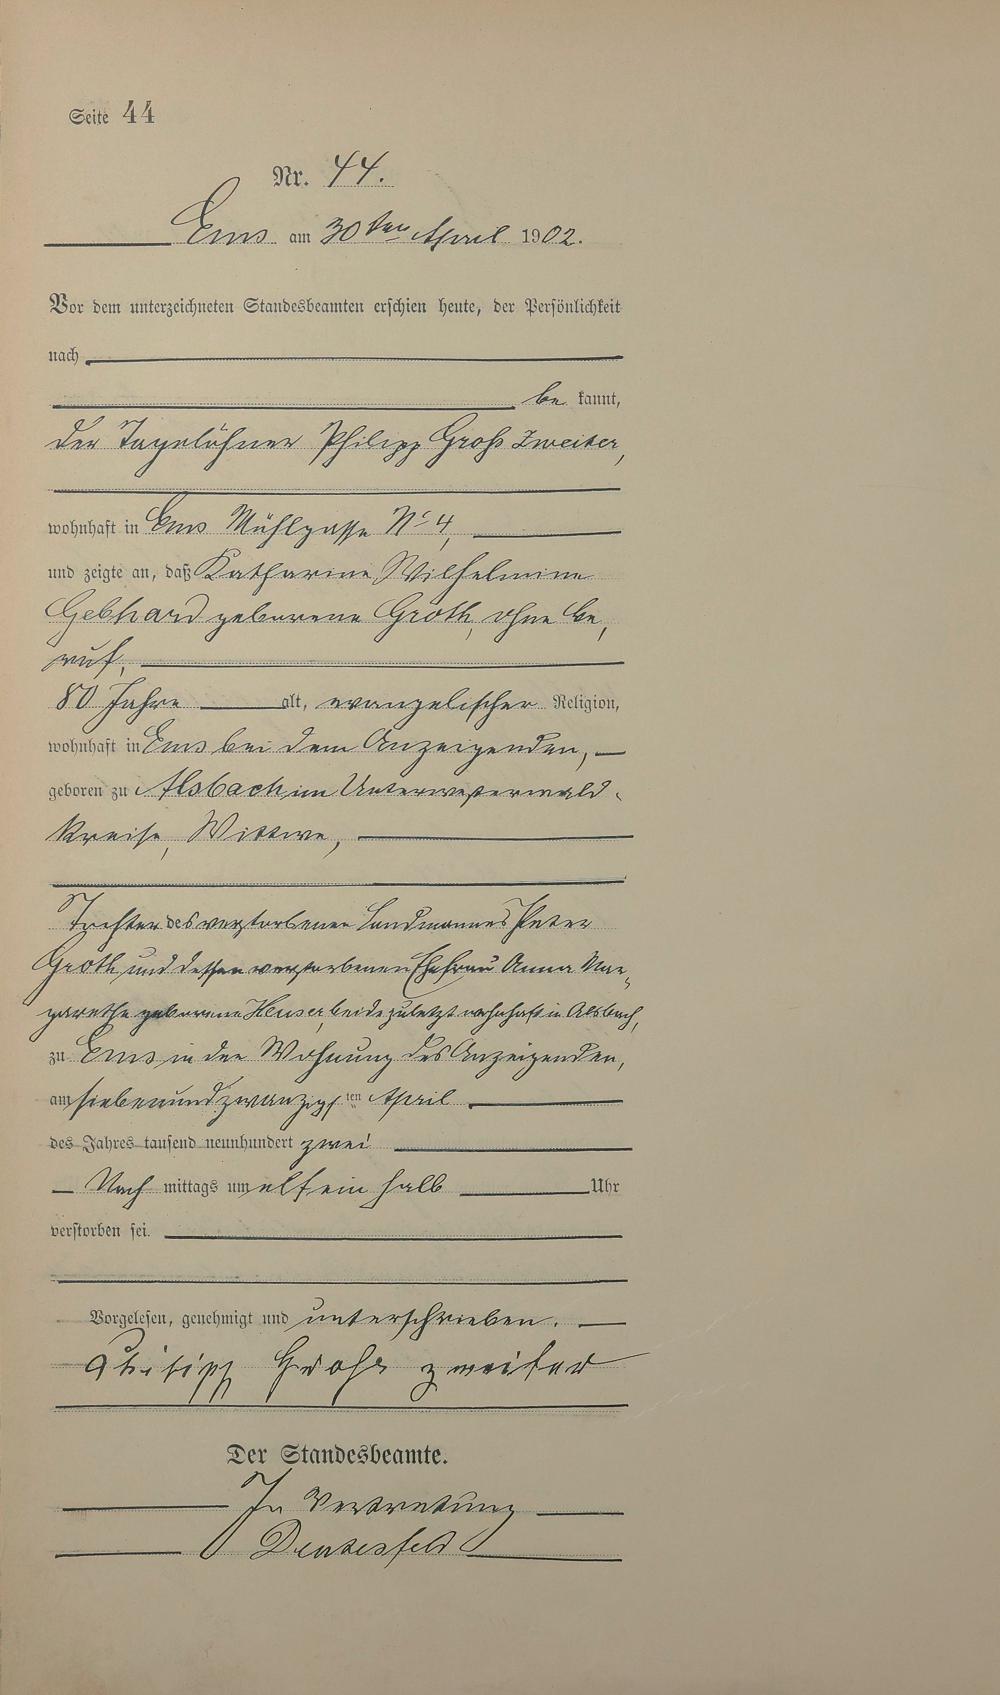 Seite 44
Nr. 44.
Ems am 30ten April 1902.
Vor dem unterzeichneten Standesbeamten erschien heute, der Persönlichkeit
nach
be kannt,
der Tagelöhner Philipp Groß Zweiter,
wohnhaft in Ems Mühlgasse No 4,
und zeigte an, daß Katharine Wilhelmine
Gebhard geborene Groth, ohne Be,
ruf,
80 Jahre alt, evangelischer Religion,
wohnhaft in Ems bei dem Anzeigenden,
geboren zu Alsbach im Unterwesterwald-
kreise, Wittwe,
Tochter des verstorbenen Landmannes Peter
Groth und dessen verstorbenen Ehefrau Anna Mar-
garethe geborene Heuser, beide zuletzt wohnhaft in Alsbach,
zu Ems in der Wohnung des Anzeigenden,
am siebenundzwanzigsten April
des Jahres tausend neunhundert zwei
Nach mittags um elf ein halb Uhr
verstorben sei.
Vorgelesen, genehmigt und unterschrieben.
Philipp Groß zweiter
Der Standesbeamte.
In Vertretung